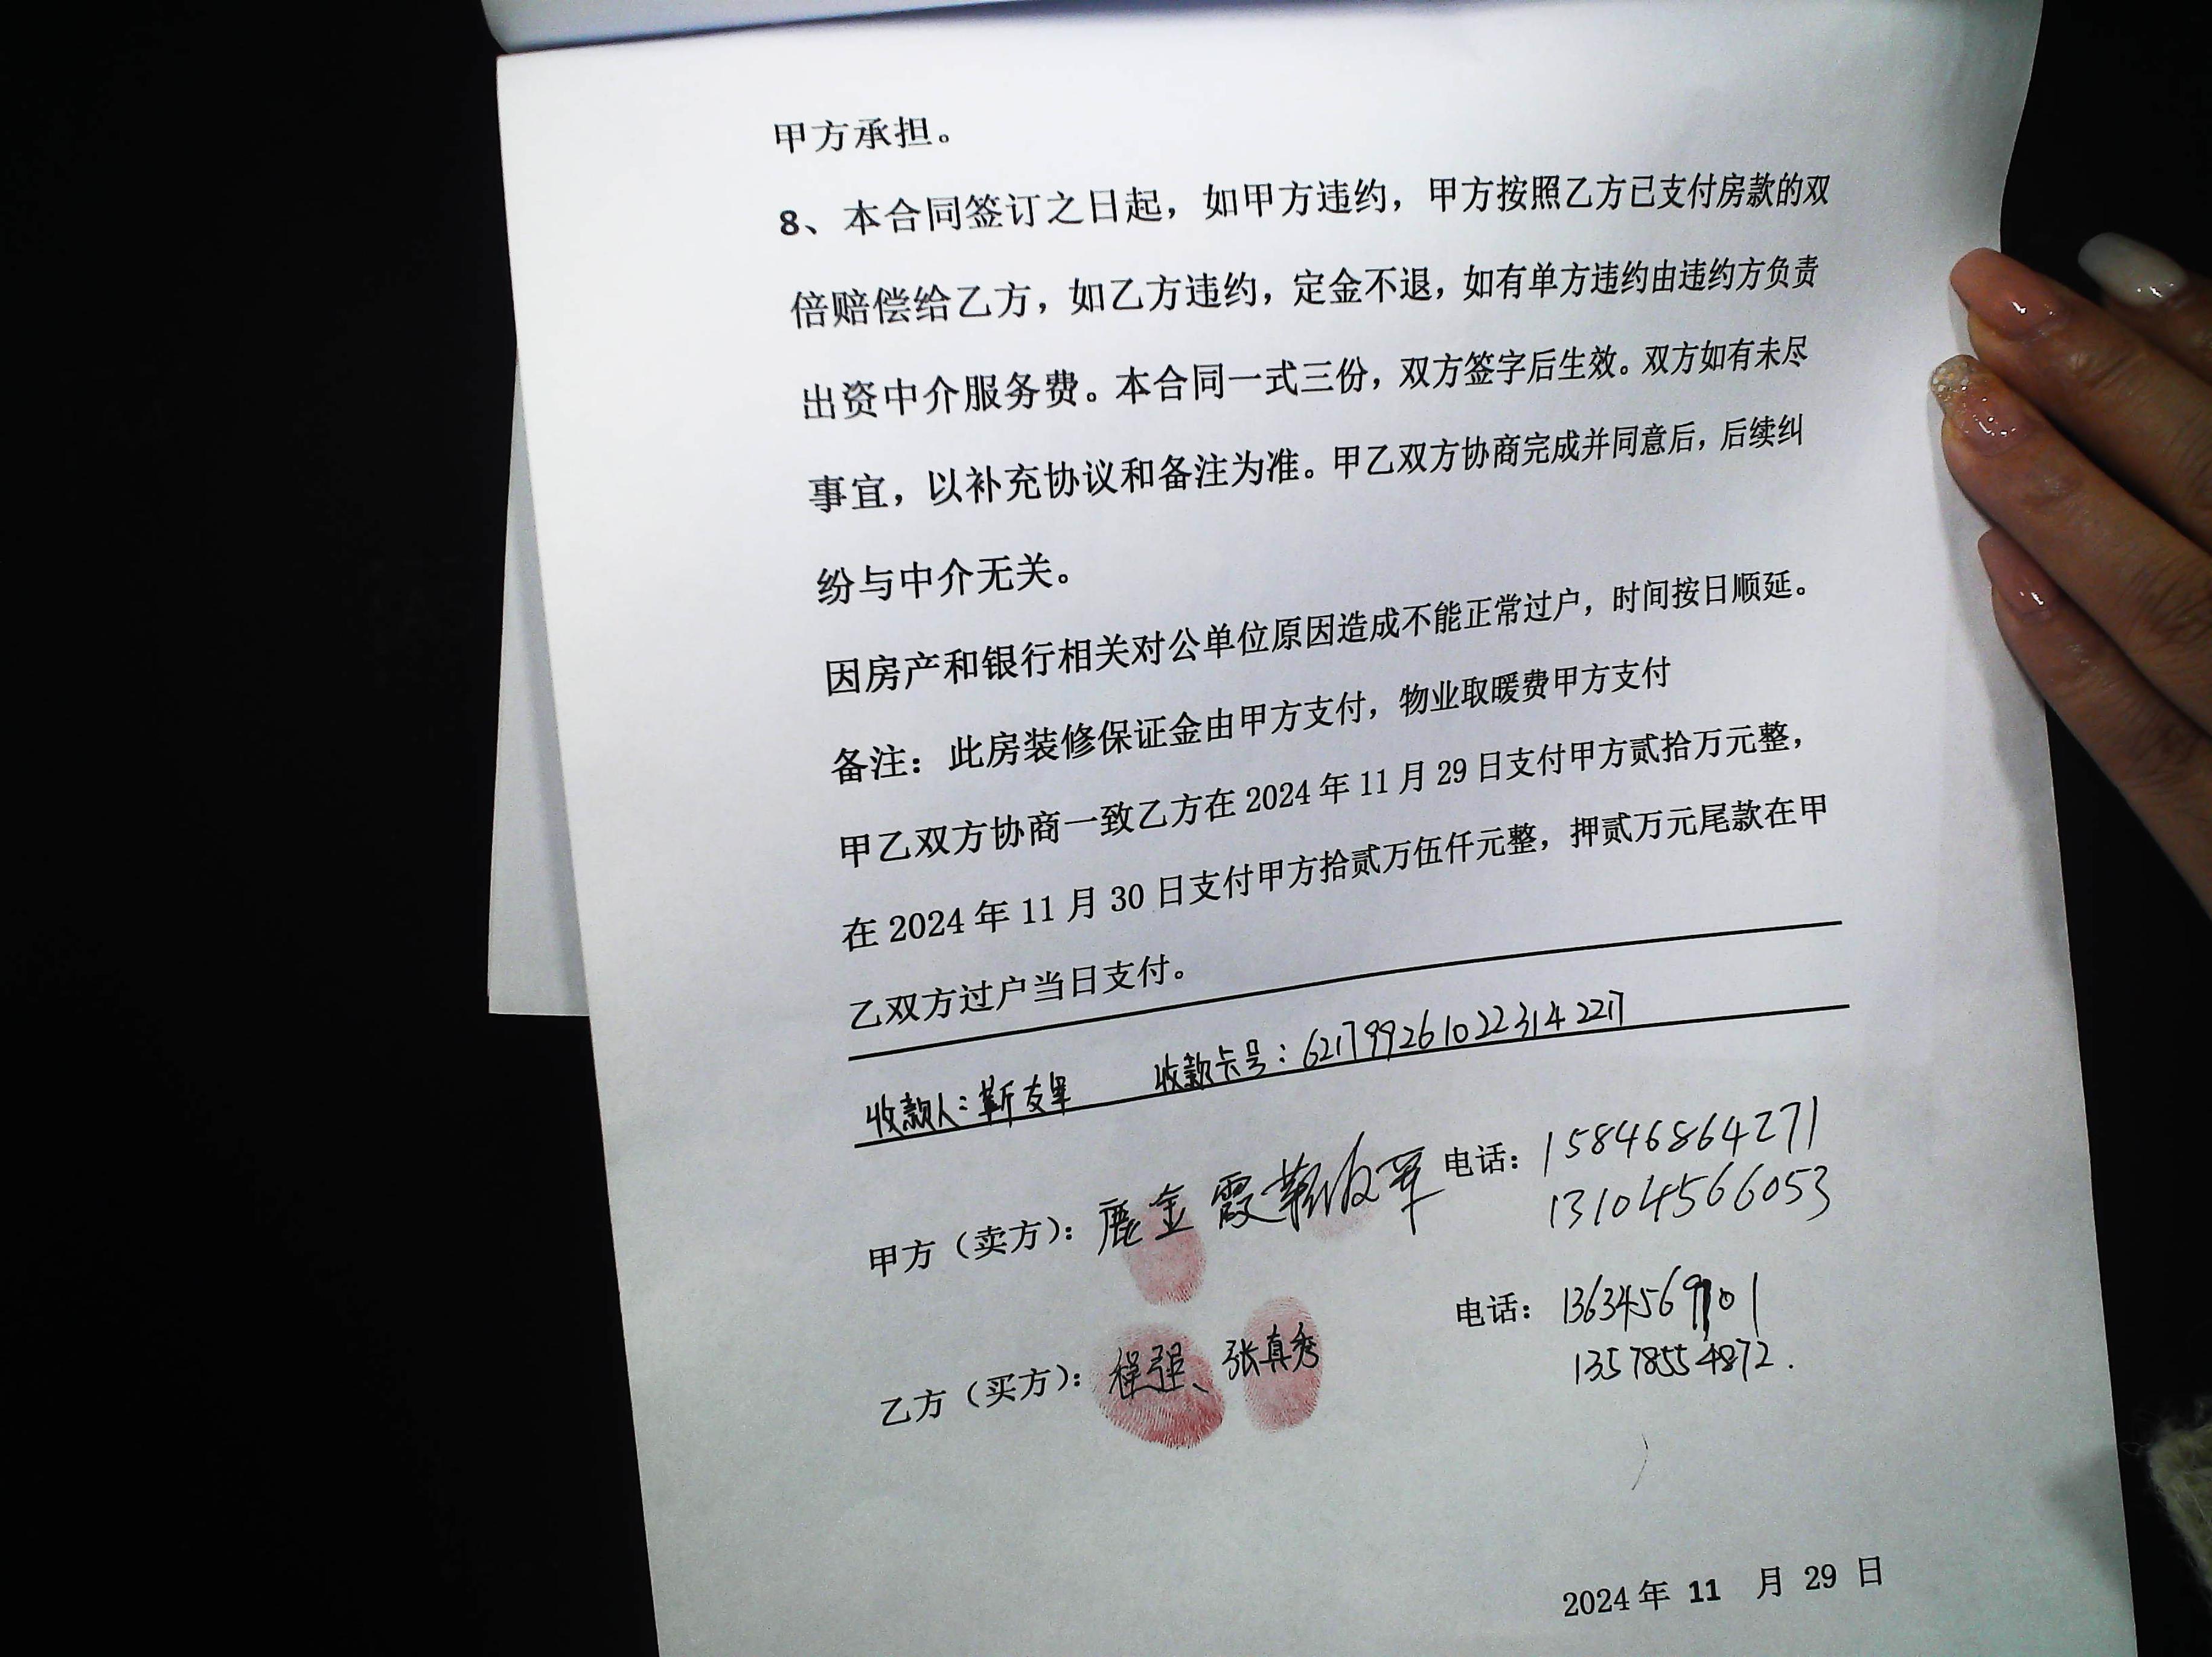 甲方承担。
8、本合同签订之日起，如甲方违约，甲方按照乙方已支付房款的双
倍赔偿给乙方，如乙方违约，定金不退，如有单方违约由违约方负责
出资中介服务费。本合同一式三份，双方签字后生效。双方如有未尽
事宜，以补充协议和备注为准。甲乙双方协商完成并同意后，后续纠
纷与中介无关。
因房产和银行相关对公单位原因造成不能正常过户，时间按日顺延。
备注：此房装修保证金由甲方支付，物业取暖费甲方支付
甲乙双方协商一致乙方在 2024 年 11 月 29 日支付甲方贰拾万元整，
在 2024 年 11 月 30 日支付甲方拾贰万伍仟元整，押贰万元尾款在甲
乙双方过户当日支付。
收款人：靳友军 收款卡号：6217992610223142217
甲方（卖方）：鹿金霞 靳友军 电话：15846864271
13104566053
乙方（买方）：程强、张真秀 电话：13634569101
13578554872.
2024 年 11 月 29 日